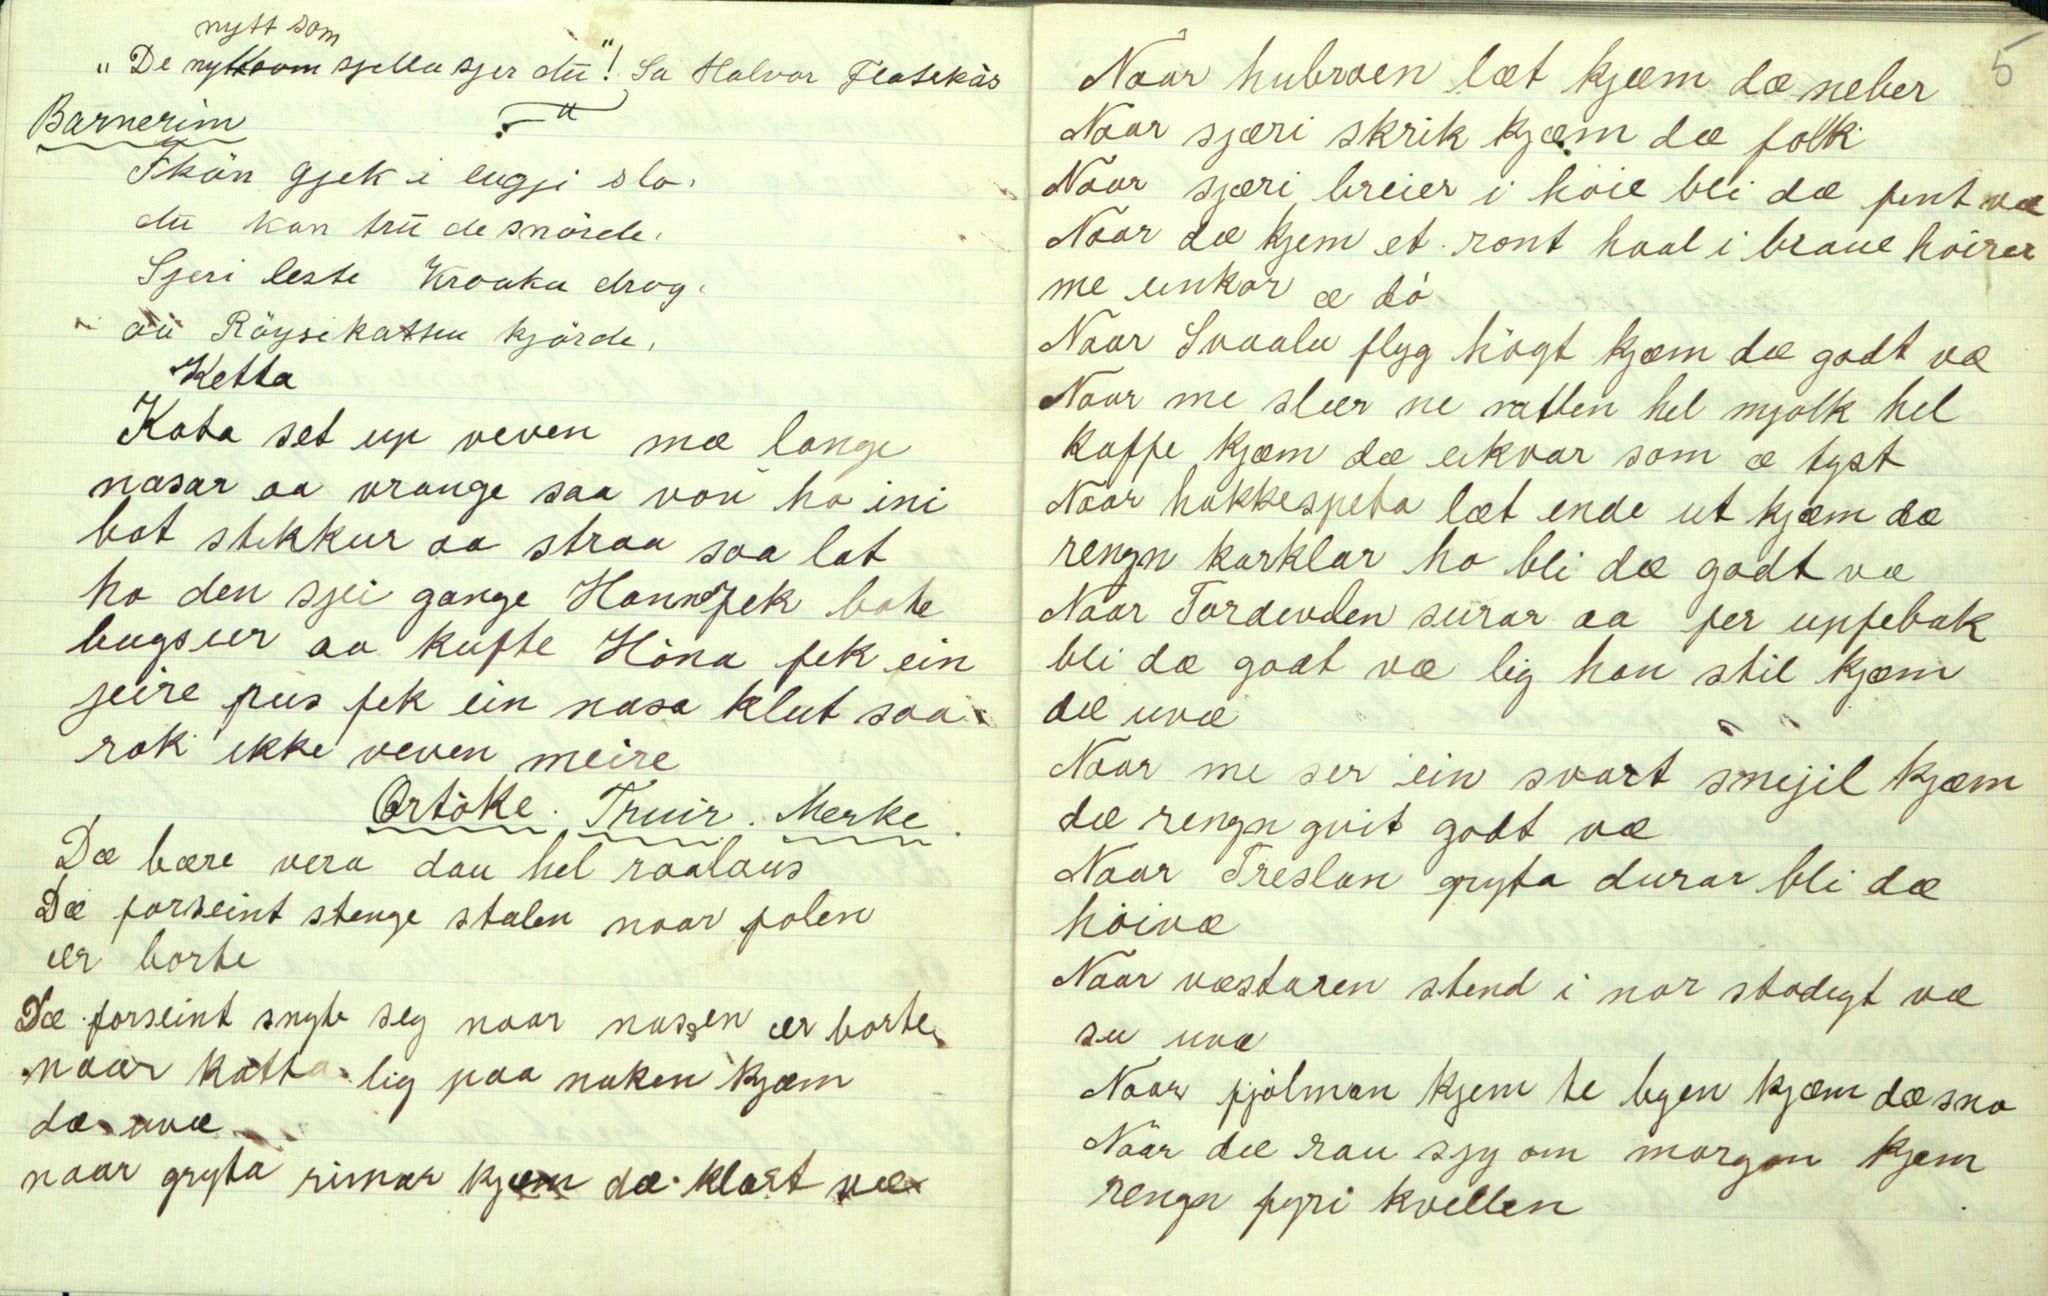 nytt som
„De nyttsom sjella sjer dū"! Sa Halvor Flatekås
Barnerim
Ikån gjek i eugji slo.
dū kan trū de snörde.
Sjeri leste Kraaka drog.
aū Röysikatten kjörde.
Ketta
Kata set up veven mæ lange
nasar aa vrange saa vov ho ini
bat stikkur aa straa saa lat
ho den sjei gange Hanne fek bate
bugsur aa kufte Höna fek ein
jeire pus fek ein nasa klut saa
rak ikke veven meire
Ortöke. Truir. Merke.
Dæ bære vera dau hel raalaus
Dæ forseint stenge stalen naar folen
ær borte
Dæ forseint snyte seg naar nasen ær borte
naar katta lig paa naken kjæm
dæ uvæ
naar gryta rimar kjæm dæ klart væ
5
Naar hubroen læt kjæm dæ neber
Naar sjæri skrik kjæm dæ folk
Naar sjæri breier i höie bli dæ pent væ
Naar dæ kjem et ront haal i braue höirer
me einkar æ dö
Naar Svaala flyg högt kjæm dæ godt væ
Naar me slær ne vatten hel mjolk hel
kaffe kjæm dæ eikvar som æ tyst
Naar hakkespeta læt ende ut kjæm dæ
rengn karklar ho bli dæ godt væ
Naar Tordevlen surar aa fer uppebak
bli dæ godt væ lig han stil kjæm
dæ uvæ
Naar me ser ein svart snejil kjæm
dæ rengn gvit godt væ
Naar Treslan gryta durar bli dæ
höivæ
Naar væstaren stend i nor stodigt væ
su uvæ
Naar fjölman kjem te bgen kjæm dæ sno
Når dæ rau sjy om morgon kjem
rengn fyri kvellen